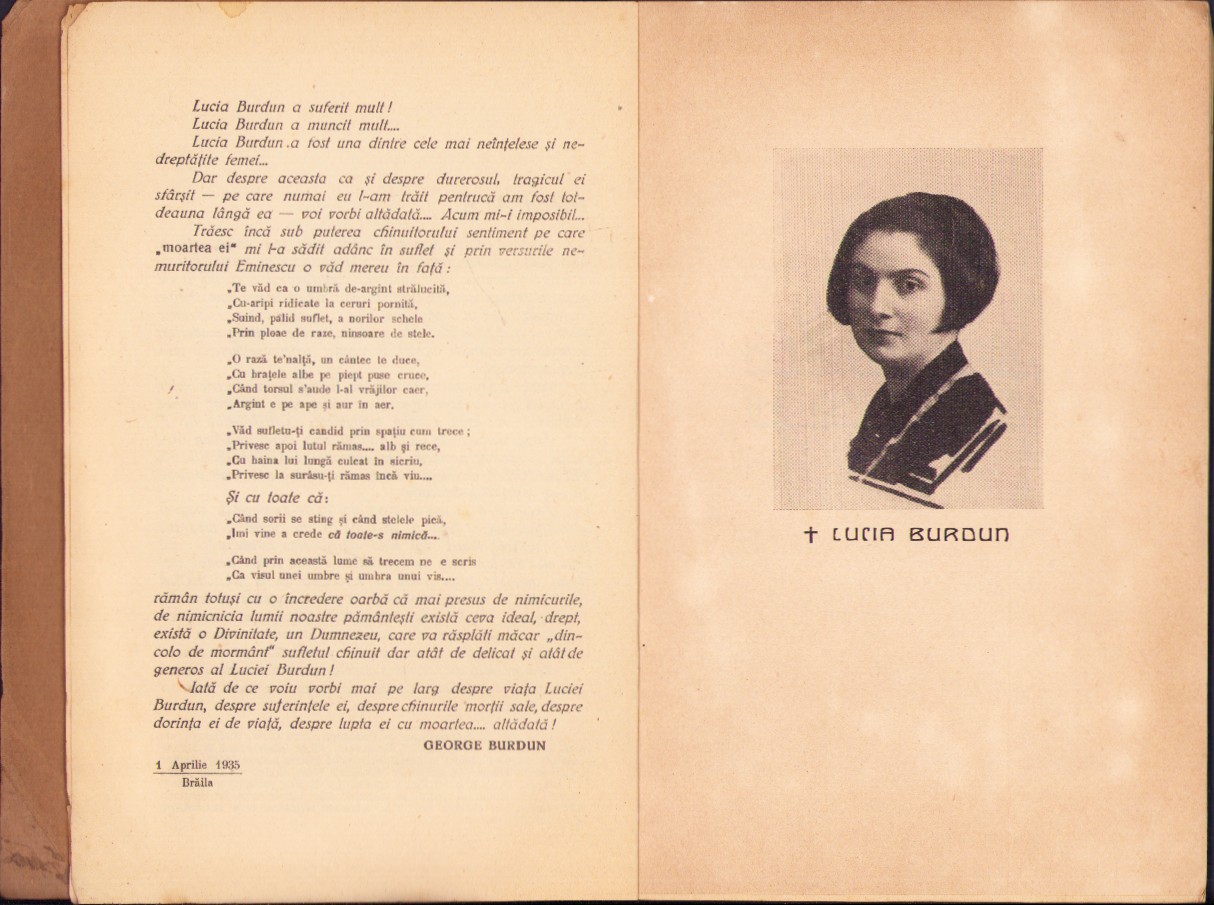 Lucia Burdun a suferit mult !
Lucia Burdun a muncit mult....
Lucia Burdun a fost una dintre cele mai neînțelese și ne-
dreptățite femei...
Dar despre aceasta ca și despre durerosul, tragicul ei
sfârșit — pe care numai eu l-am trăit pentrucă am fost tot-
deauna lângă ea — voi vorbi altădată.... Acum mi-i imposibil...
Trăesc încă sub puterea chinuitorului sentiment pe care
„moartea ei“ mi l-a sădit adânc în suflet și prin versurile ne-
muritorului Eminescu o văd mereu în față :
„Te văd ca o umbră de-argint strălucită,
„Cu-aripi ridicate la ceruri pornită,
„Suind, pălid suflet, a norilor schele
„Prin ploae de raze, ninsoare de stele.
„O rază te'nalță, un cântec te duce,
„Cu brațele albe pe piept puse cruce,
„Când torsul s'aude l-al vrăjilor caer,
„Argint e pe ape și aur în aer.
„Văd sufletu-ți candid prin spațiu cum trece ;
„Privesc apoi lutul rămas.... alb și rece,
„Cu haina lui lungă culcat în sicriu,
„Privesc la surâsu-ți rămas încă viu....
Și cu toate că:
„Când sorii se sting și când stelele pică,
„Imi vine a crede că toate-s nimică...
„Când prin această lume să trecem ne e scris
„Ca visul unei umbre și umbra unui vis....
rămân totuși cu o încredere oarbă că mai presus de nimicurile,
de nimicnicia lumii noastre pământești există ceva ideal, drept,
există o Divinitate, un Dumnezeu, care va răsplăti măcar „din-
colo de mormânt“ sufletul chinuit dar atât de delicat și atât de
generos al Luciei Burdun !
Iată de ce voiu vorbi mai pe larg despre viața Luciei
Burdun, despre suferințele ei, despre chinurile morții sale, despre
dorința ei de viață, despre lupta ei cu moartea.... altădată !
GEORGE BURDUN
1 Aprilie 1935
Brăila
† LUCIA BURDUN